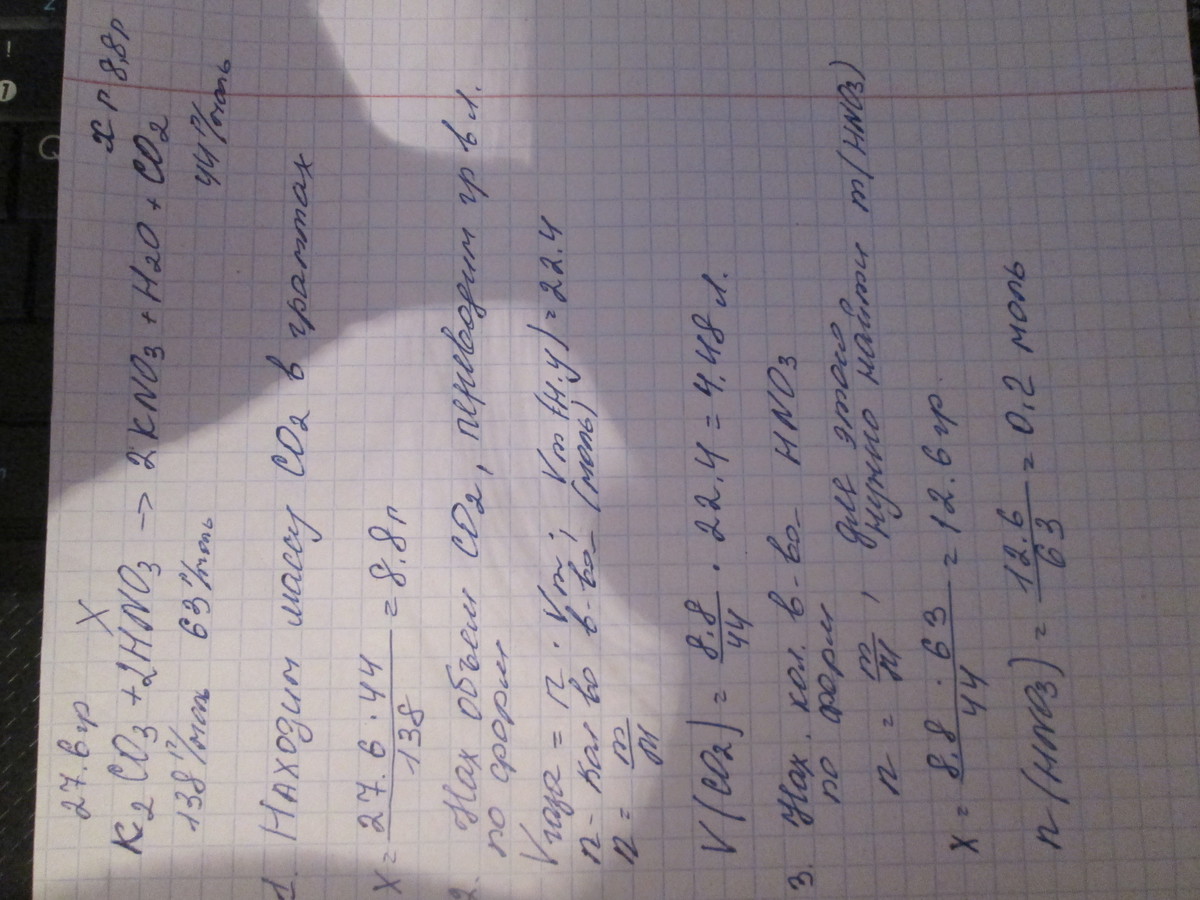 27.6 гр X x г 8,8г
K2CO3 + 2HNO3 → 2KNO3 + H2O + CO2
138 г/моль 63 г/моль 44 г/моль
1. Находим массу CO2 в граммах
X = 27.6 · 44 / 138 = 8.8 г
2. Нах объем CO2, переводим гр в л.
по форм
Vгаза = n · Vm; Vm (н.у) = 22.4
n - кол во в-ва (моль)
n = m/M
V(CO2) = 8.8/44 · 22.4 = 4.48 л.
3. Нах. кол. в-ва HNO3
по форм для этого
n = m/M, нужно найти m(HNO3)
X = 8.8 · 63 / 44 = 12.6 гр.
n(HNO3) = 12.6/63 = 0,2 моль
Q